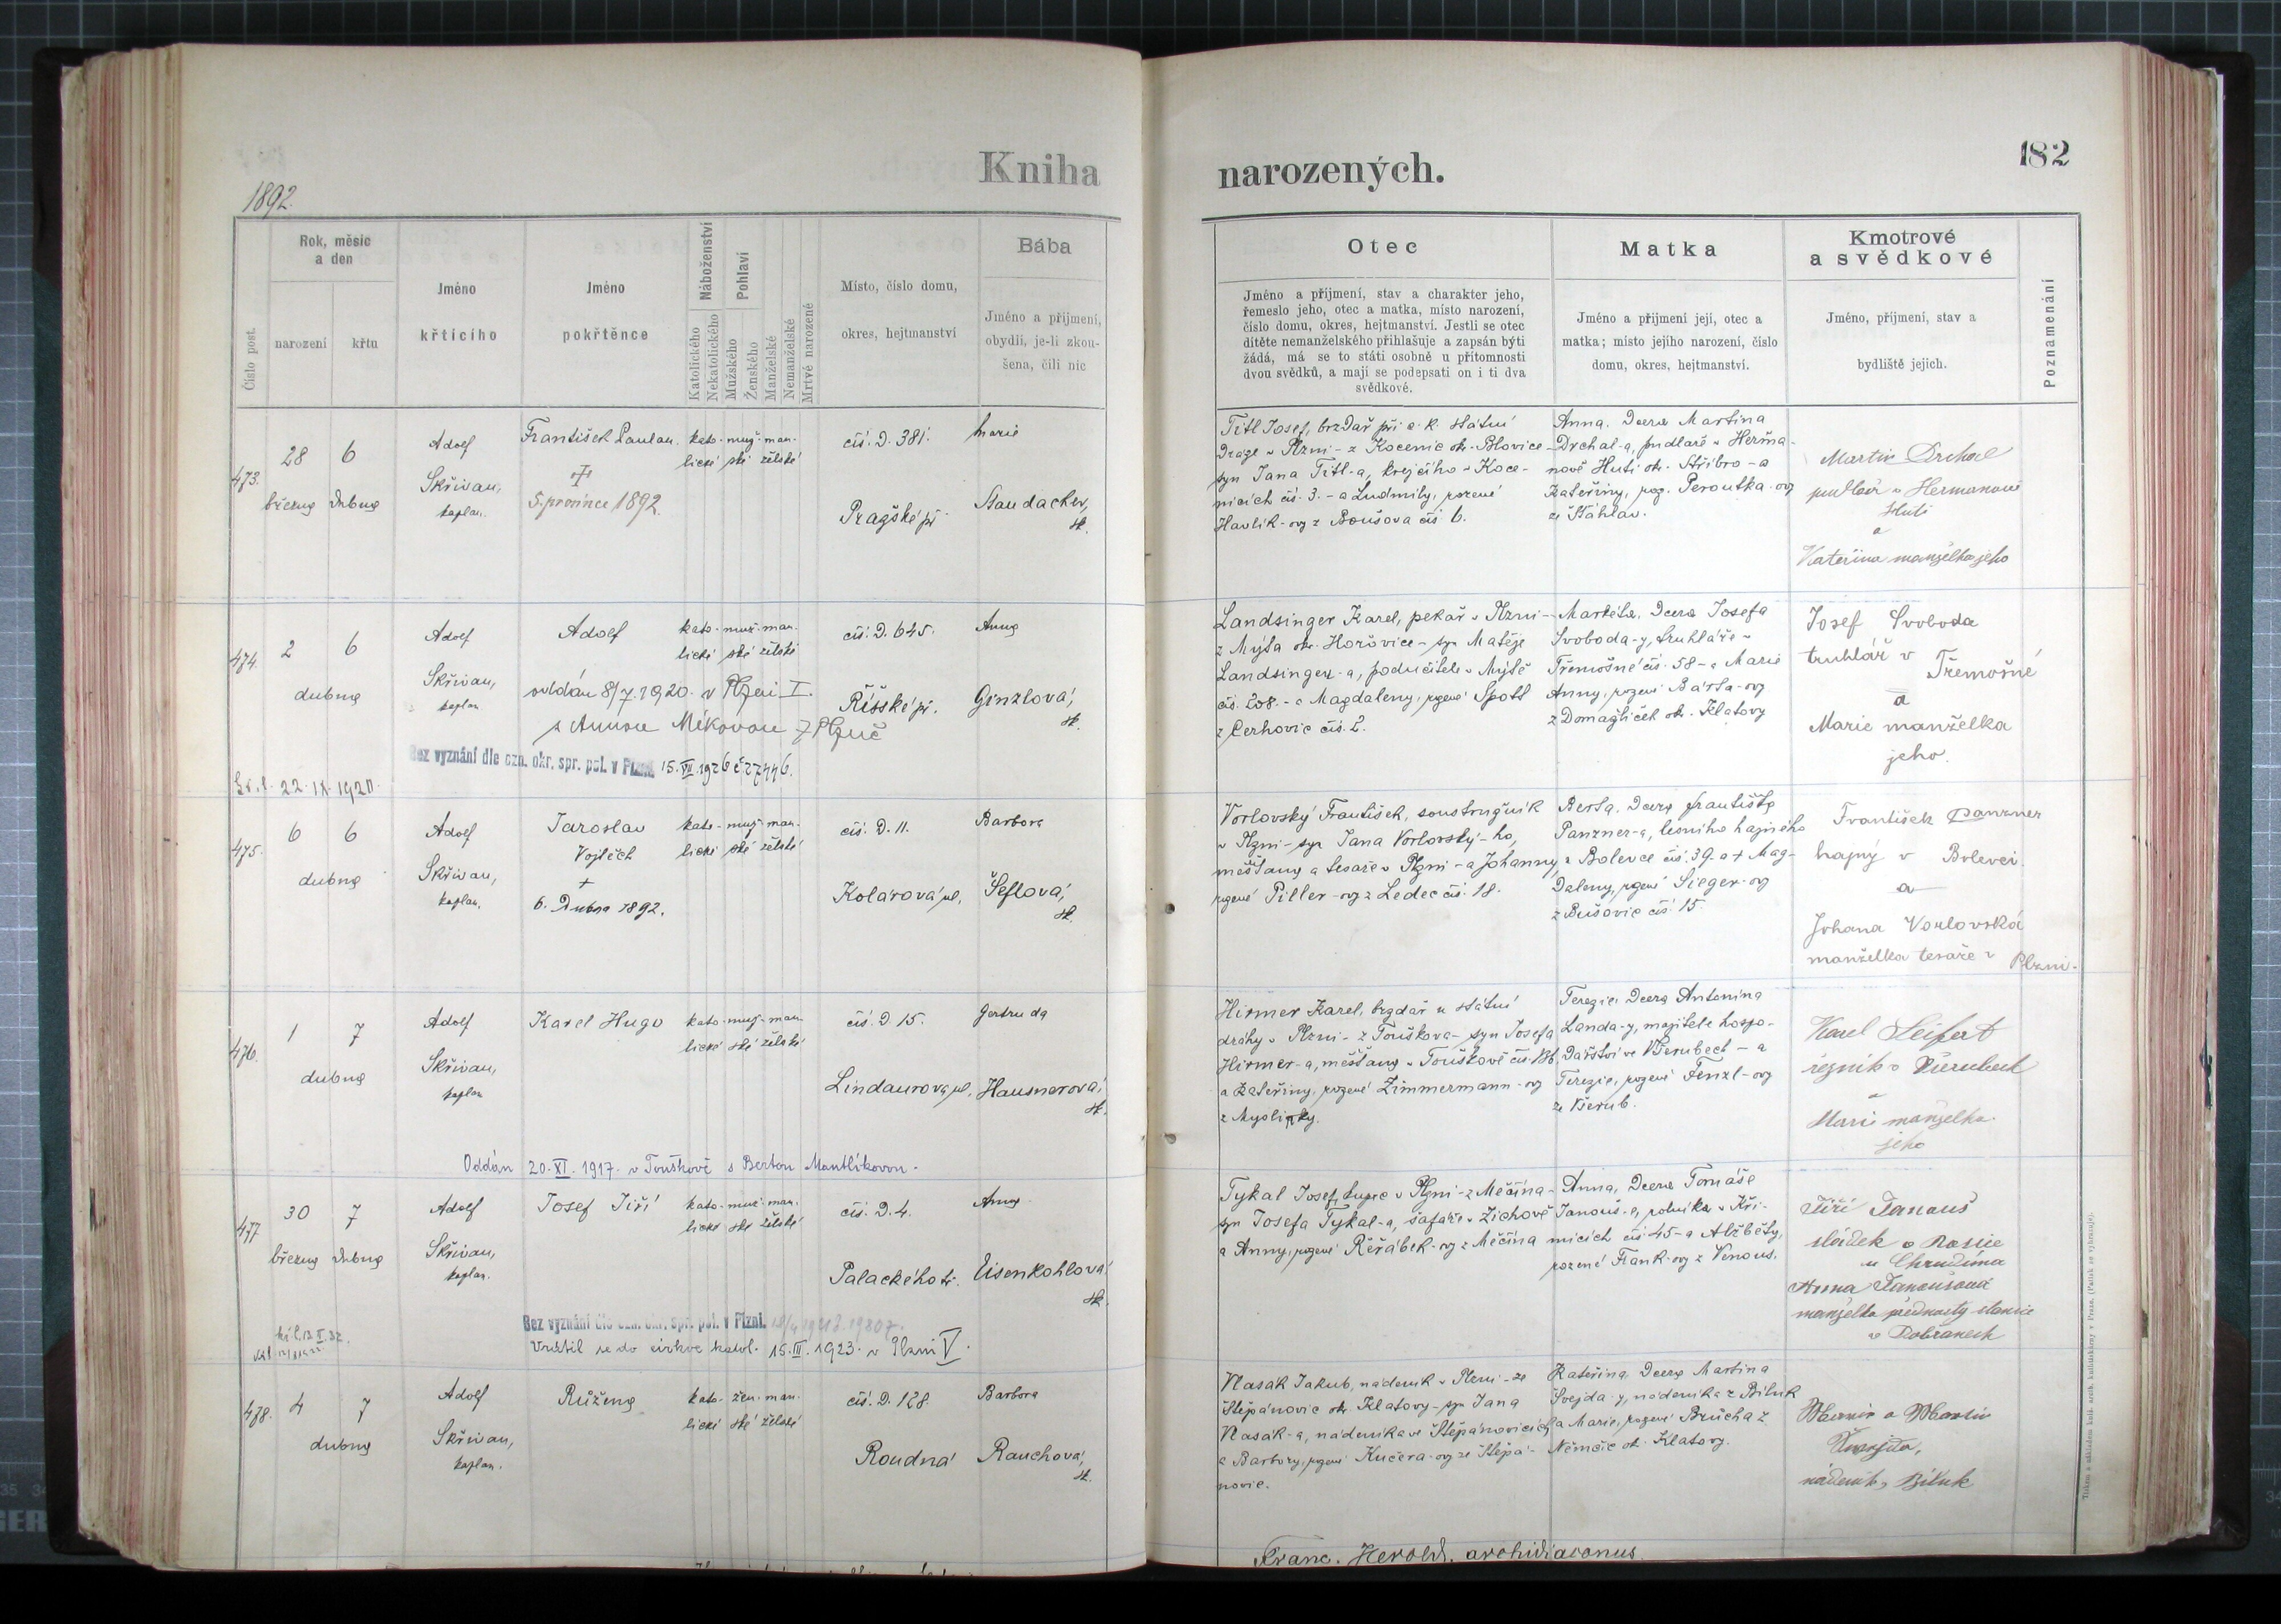 1892.
Kniha
narozených.
182
Číslo post.
Rok, měsíc
a den
narození
křtu
Jméno
křticího
Jméno
pokřtěnce
Náboženství
Katolického
Nekatolického
Pohlaví
Mužského
Ženského
Manželské
Nemanželské
Mrtvé narozené
Místo, číslo domu,
okres, hejtmanství
Bába
Jméno a příjmení,
obydlí, je-li zkou-
šena, čili nic
Otec
Jméno a příjmení, stav a charakter jeho,
řemeslo jeho, otec a matka, místo narození,
číslo domu, okres, hejtmanství. Jestli se otec
dítěte nemanželského přihlašuje a zapsán býti
žádá, má se to státi osobně u přítomnosti
dvou svědků, a mají se podepsati on i ti dva
svědkové.
Matka
Jméno a příjmení její, otec a
matka; místo jejího narození, číslo
domu, okres, hejtmanství.
Kmotrové
a svědkové
Jméno, příjmení, stav a
bydliště jejich.
Poznamenání
473.
28 6
března dubna
Adolf
Skřivan,
kaplan.
František Paulan.
5. prosince 1892.
kato- muž- man-
lické ské želské
čís. d. 381.
Pražské př.
Marie
Staudacher,
zk.
Titl Josef, brzdař při c. k. státní
dráze v Plzni - z Kocenic ok. Blovice -
syn Jana Titl-a, krejčího v Koce-
nicích čís. 3. - a Ludmily, rozené
Havlík-ovy z Boušova čís. 6.
Anna, dcera Martina
Drchal-a, pudlaře v Heřma-
nově Huti ok. Stříbro - a
Kateřiny, roz. Peroutka-ovy
ze Šťáhlav.
Martin Drchal
pudlář v Hermanově
Huti
a
Kateřina manželka jeho
474.
2 6
dubna
Adolf
Skřivan,
kaplan
Adolf
oddán 8/7. 1920. v Plzni I.
s Annou Mikovou z Plzně
Bez vyznání dle ozn. okr. spr. pol. v Plzni 15. VII. 1926 č. 27446.
22. IX. 1920.
kato- muž- man-
lické ské želské
čís. d. 645.
Říšské př.
Anna
Ginzlová,
zk.
Landsinger Karel, pekař v Plzni -
z Mýta ok. Hořovice - syn Matěje
Landsinger-a, podučitele v Mýtě
čís. 208. - a Magdaleny, rozené Spott
z Cerhovic čís. 2.
Markéta, dcera Josefa
Svoboda-y, truhláře v
Třemošné čís. 58 - a Marie
Anny, rozené Bárta-ovy
z Domažliček ok. Klatovy
Josef Svoboda
truhlář v
Třemošné
a
Marie manželka
jeho.
475.
6 6
dubna
Adolf
Skřivan,
kaplan.
Jaroslav
Vojtěch
+
6. Dubna 1892.
kato- muž- man-
lické ské želské
čís. d. 11.
Kolárova ul.
Barbora
Šeflová,
zk.
Vorlovský František, soustružník
v Plzni - syn Jana Vorlovský-ho,
měšťana a tesaře v Plzni - a Johanny,
rozené Piller-ovy z Ledec čís. 18.
Berta, dcera Františka
Panzner-a, lesního hajného
z Bolevce čís. 39. a + Mag-
daleny, rozené Sieger-ovy
z Bušovic čís. 15.
František Panzner
hajný v Bolevci.
a
Johana Vorlovská
manželka tesaře v
Plzni.
476.
1 7
dubna
Adolf
Skřivan,
kaplan
Karel Hugo
Oddán 20. XI. 1917. v Touškově s Bertou Mantlíkovou.
kato- muž- man-
lické ské želské
čís. d. 15.
Lindaurova ul.
Gertruda
Hausnerová,
zk.
Hirmer Karel, brzdař u státní
dráhy v Plzni - z Touškova - syn Josefa
Hirmer-a, měšťana v Touškově čís. 186
a Kateřiny, rozené Zimmermann-ovy
z Myslinky.
Terezie, dcera Antonína
Landa-y, majitele hospo-
dářství ve Všerubech - a
Terezie, rozené Fenzl-ovy
ze Všerub.
Karel Seifert
řezník v Všerubech
a
Marie manželka
jeho
477.
30 7
března dubna
Adolf
Skřivan,
kaplan.
Josef Jiří
Bez vyznání dle ozn. okr. spr. pol. v Plzni.
Vrátil se do církve katol. 15. III. 1923. v Plzni V.
kato- muž- man-
lické ské želské
čís. d. 4.
Palackého tř.
Anna
Eisenkohlová,
zk.
Tykal Josef, kupec v Plzni - z Měčína -
syn Josefa Tykal-a, šafáře v Zichově
a Anny, rozené Řeřábek-ovy z Měčína
Anna, dcera Tomáše
Janouš-e, rolníka v Kři-
micích čís. 45 - a Alžběty,
rozené Frank-ovy z Venous.
Jiří Janouš
sládek v Rosice
u Chrudima
Anna Janoušová
manželka přednosty stanice
v Dobřanech
478.
4 7
dubna
Adolf
Skřivan,
kaplan.
Růžena
kato- žen- man-
lické ské želské
čís. d. 128.
Roudná
Barbora
Rauchová,
zk.
Vlasák Jakub, nádeník v Plzni - ze
Štěpánovic ok. Klatovy - syn Jana
Vlasák-a, nádeníka ve Štěpánovicích
a Barbory, rozené Kučera-ovy ze Štěpá-
novic.
Kateřina, dcera Martina
Švejda-y, nádeníka z Biluk
a Marie, rozené Brůcha z
Němčic ok. Klatovy.
Marie a Martin
Švejda,
nádeník, Biluk
Franc. Herold, archidiaconus